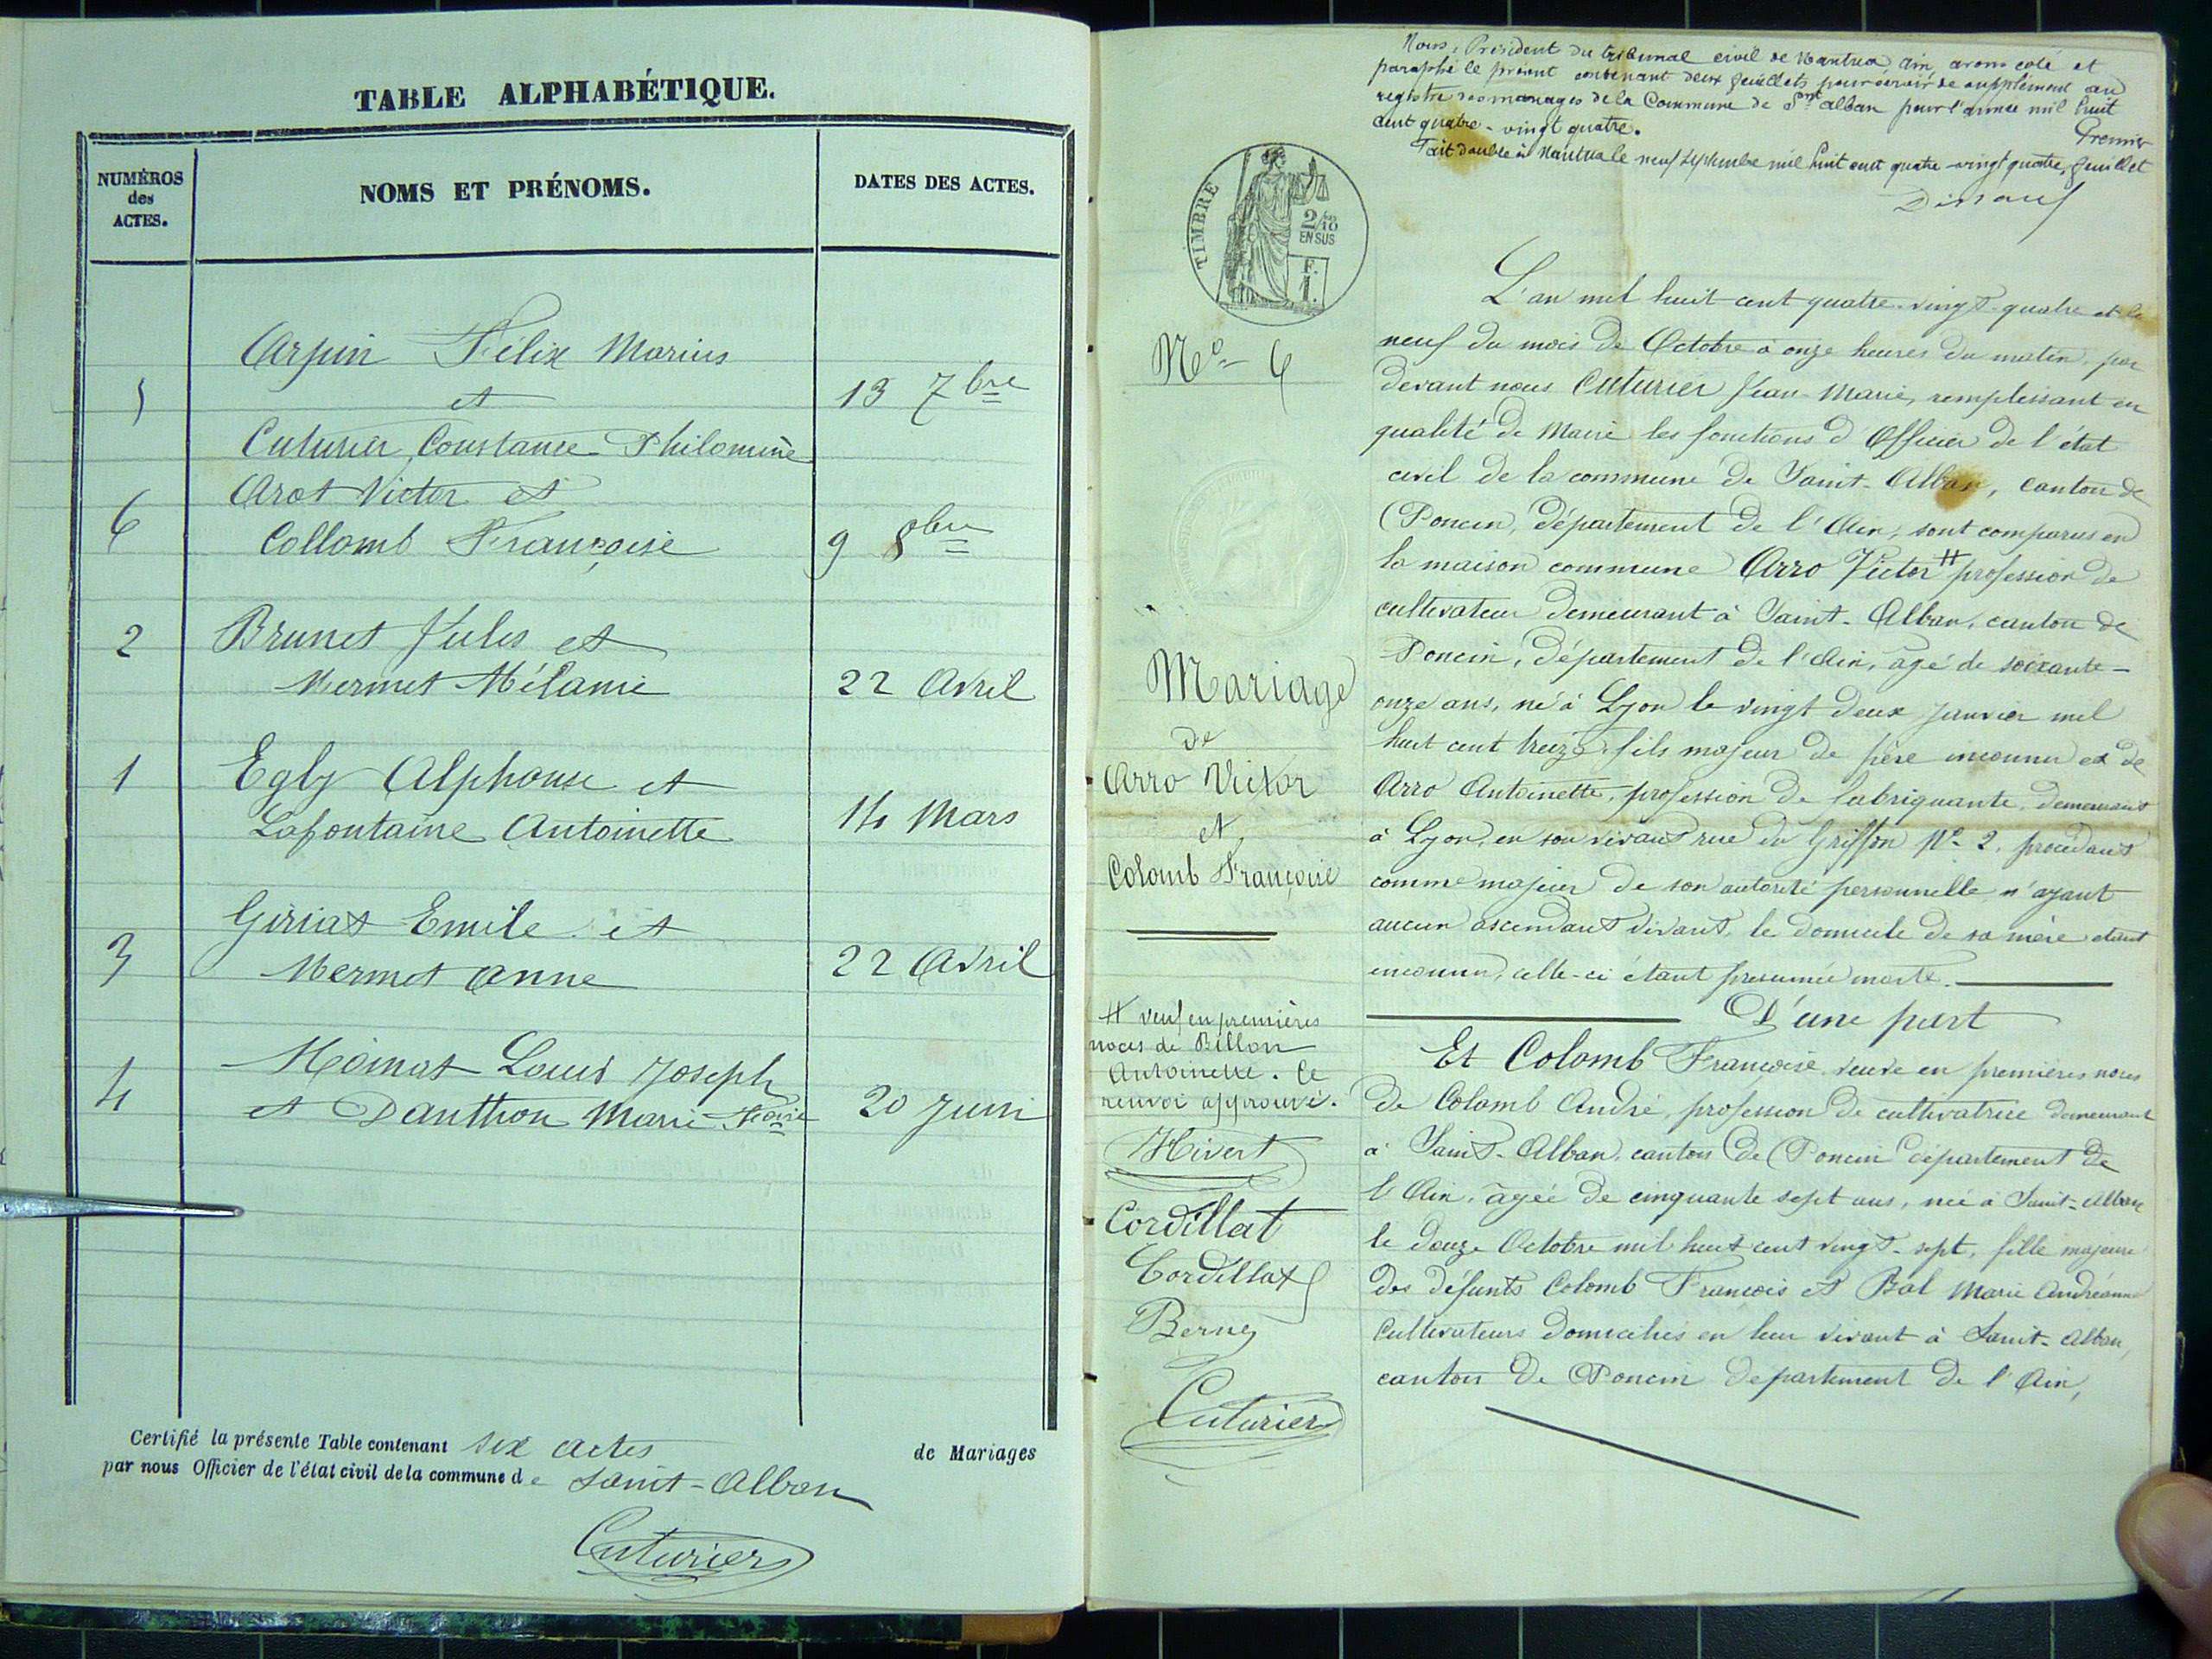 TABLE ALPHABÉTIQUE.
NUMÉROS
des
ACTES.
NOMS ET PRÉNOMS.
DATES DES ACTES.
Arpin Félix Marius
5 et 13 7bre
Cuturier Constance Philomène
Arot Victor et
6 Collomb Françoise 9 8bre
2 Brunet Jules et
Mermet Mélanie 22 Avril
1 Egly Alphonse et
Lafontaine Antoinette 14 Mars
Giriat Emile et
3 Mermet Anne 22 Avril
Moinat Louis Joseph
4 et Danthon Marie 20 Juin
Certifié la présente Table contenant six actes de Mariages
par nous Officier de l'état civil de la commune de Saint-Alban
Cuturier
Nous, Président du tribunal civil de Nantua Ain, avons coté et
paraphé le présent contenant deux feuillets pour servir de supplément au
registre des mariages de la Commune de St alban pour l'année mil huit
cent quatre-vingt quatre.
Premier
Fait double à Nantua le neuf septembre mil huit cent quatre-vingt quatre, feuillet
TIMBRE
2/10
EN SUS
F.
1.
No- 6
Mariage
de
Arro Victor
et
Colomb Françoise
# veuf en premières
noces de Billon
Antoinette. Ce
renvoi approuvé.
Hivert
Cordillat
Cordillat
Berne
Cuturier
L'an mil huit cent quatre-vingt-quatre et le
neuf du mois de Octobre à onze heures du matin, par
devant nous Cuturier Jean-Marie, remplissant en
qualité de Maire les fonctions d'Officier de l'état
civil de la commune de Saint-Alban, canton de
Poncin, département de l'Ain, sont comparus en
la maison commune Arro Victor # profession de
cultivateur demeurant à Saint-Alban, canton de
Poncin, département de l'Ain, âgé de soixante-
onze ans, né à Lyon le vingt deux Janvier mil
huit cent treize fils majeur de père inconnu et de
Arro Antoinette, profession de fabriquante, demeurant
à Lyon, en son vivant rue du Griffon No- 2, procédant
comme majeur de son autorité personnelle n'ayant
aucun ascendant vivant, le domicile de sa mère étant
inconnu, celle-ci étant présumée morte.
D'une part
Et Colomb Françoise veuve en premières noces
de Colomb André, profession de cultivatrice demeurant
à Saint-Alban, canton de Poncin département de
l'Ain, âgée de cinquante sept ans, née à Saint-Alban
le douze Octobre mil huit cent vingt-sept, fille majeure
des défunts Colomb François et Bal Marie Andréanne
Cultivateurs domiciliés en leur vivant à Saint-Alban,
canton de Poncin département de l'Ain,